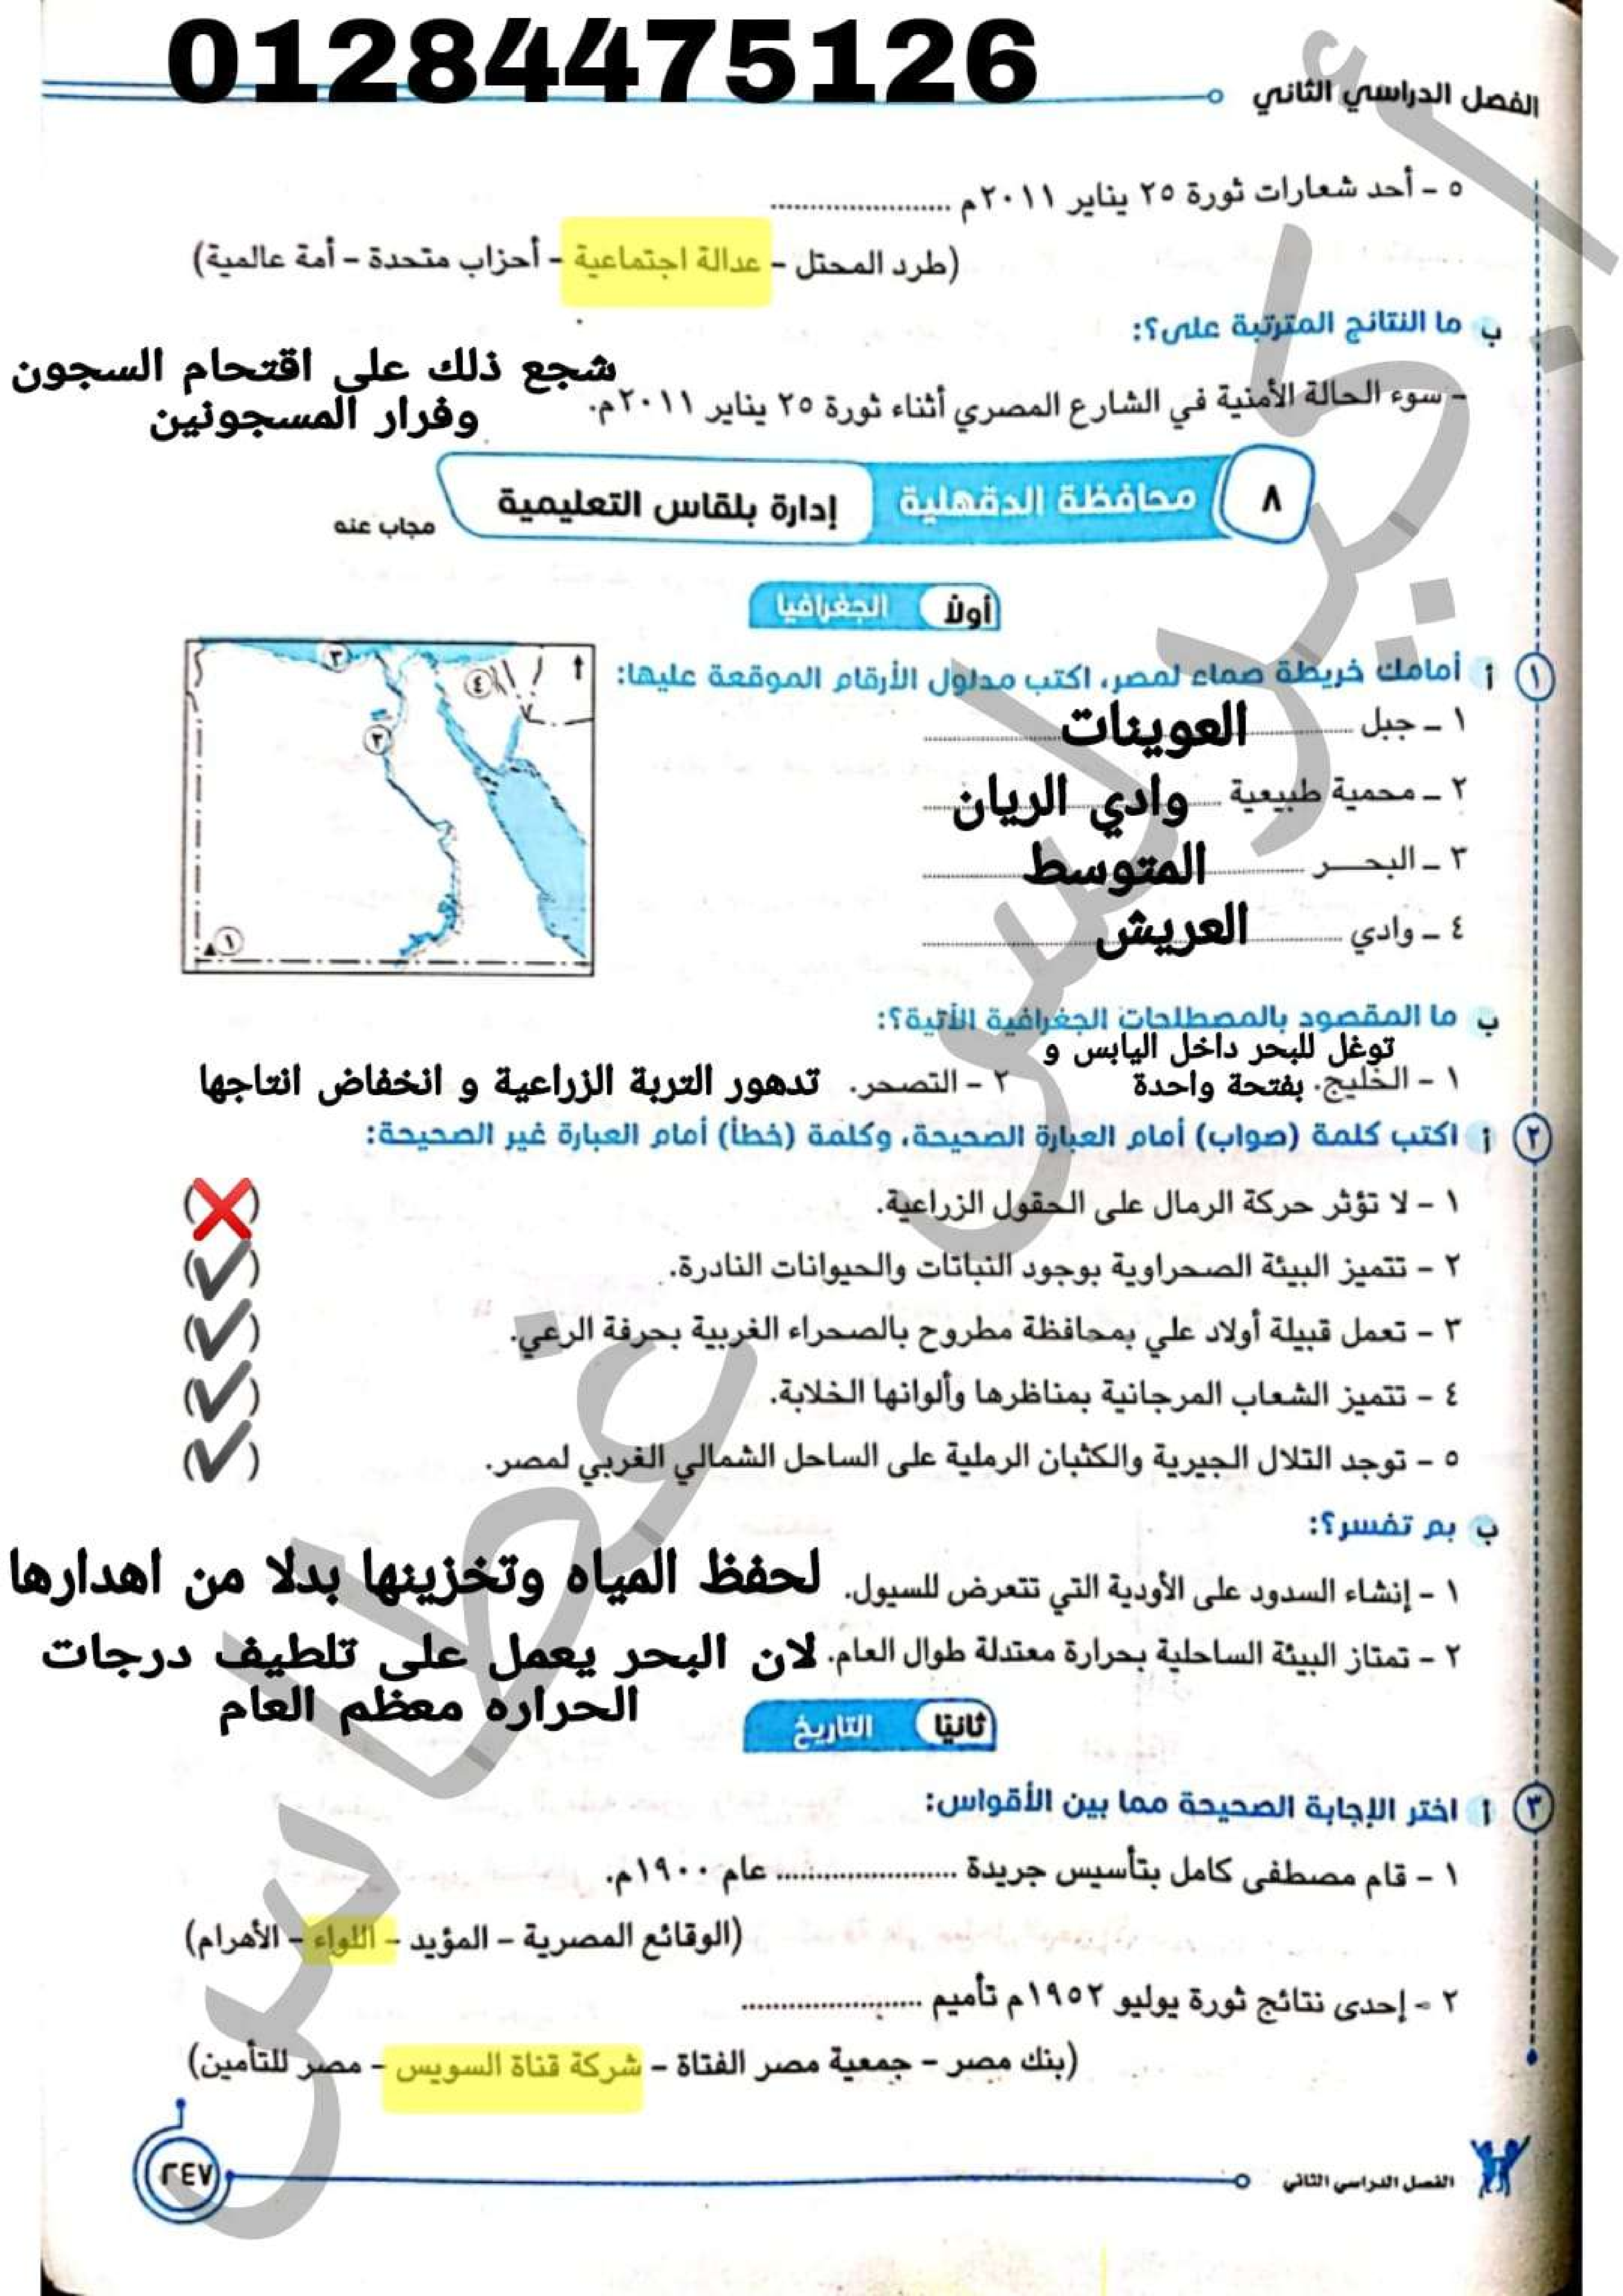 01284475126
الفصل الدراسي الثاني
٥ - أحد شعارات ثورة ٢٥ يناير ٢٠١١م ......................
(طرد المحتل - عدالة اجتماعية - أحزاب متحدة - أمة عالمية)
ب ما النتائج المترتبة على؟:
شجع ذلك على اقتحام السجون
- سوء الحالة الأمنية في الشارع المصري أثناء ثورة ٢٥ يناير ٢٠١١م.
وفرار المسجونين
٨ محافظة الدقهلية إدارة بلقاس التعليمية
مجاب عنه
أولاً الجغرافيا
١ أ أمامك خريطة صماء لمصر، اكتب مدلول الأرقام الموقعة عليها:
١ ـ جبل العوينات
٢ ـ محمية طبيعية وادي الريان
٣ ـ البحـــر المتوسط
٤ ـ وادي العريش
٣
٤
٢
١
ب ما المقصود بالمصطلحات الجغرافية الآتية؟:
توغل للبحر داخل اليابس و
١ - الخليج. بفتحة واحدة ٢ - التصحر. تدهور التربة الزراعية و انخفاض انتاجها
٢ أ اكتب كلمة (صواب) أمام العبارة الصحيحة، وكلمة (خطأ) أمام العبارة غير الصحيحة:
١ - لا تؤثر حركة الرمال على الحقول الزراعية. (❌)
٢ - تتميز البيئة الصحراوية بوجود النباتات والحيوانات النادرة. (✔)
٣ - تعمل قبيلة أولاد علي بمحافظة مطروح بالصحراء الغربية بحرفة الرعي. (✔)
٤ - تتميز الشعاب المرجانية بمناظرها وألوانها الخلابة. (✔)
٥ - توجد التلال الجيرية والكثبان الرملية على الساحل الشمالي الغربي لمصر. (✔)
ب بم تفسر؟:
١ - إنشاء السدود على الأودية التي تتعرض للسيول. لحفظ المياه وتخزينها بدلا من اهدارها
٢ - تمتاز البيئة الساحلية بحرارة معتدلة طوال العام. لان البحر يعمل على تلطيف درجات
الحراره معظم العام
ثانيًا التاريخ
٣ أ اختر الإجابة الصحيحة مما بين الأقواس:
١ - قام مصطفى كامل بتأسيس جريدة ...................... عام ١٩٠٠م.
(الوقائع المصرية - المؤيد - اللواء - الأهرام)
٢ - إحدى نتائج ثورة يوليو ١٩٥٢م تأميم ......................
(بنك مصر - جمعية مصر الفتاة - شركة قناة السويس - مصر للتأمين)
الفصل الدراسي الثاني
٢٤٧
أ. كيرلس غطاس